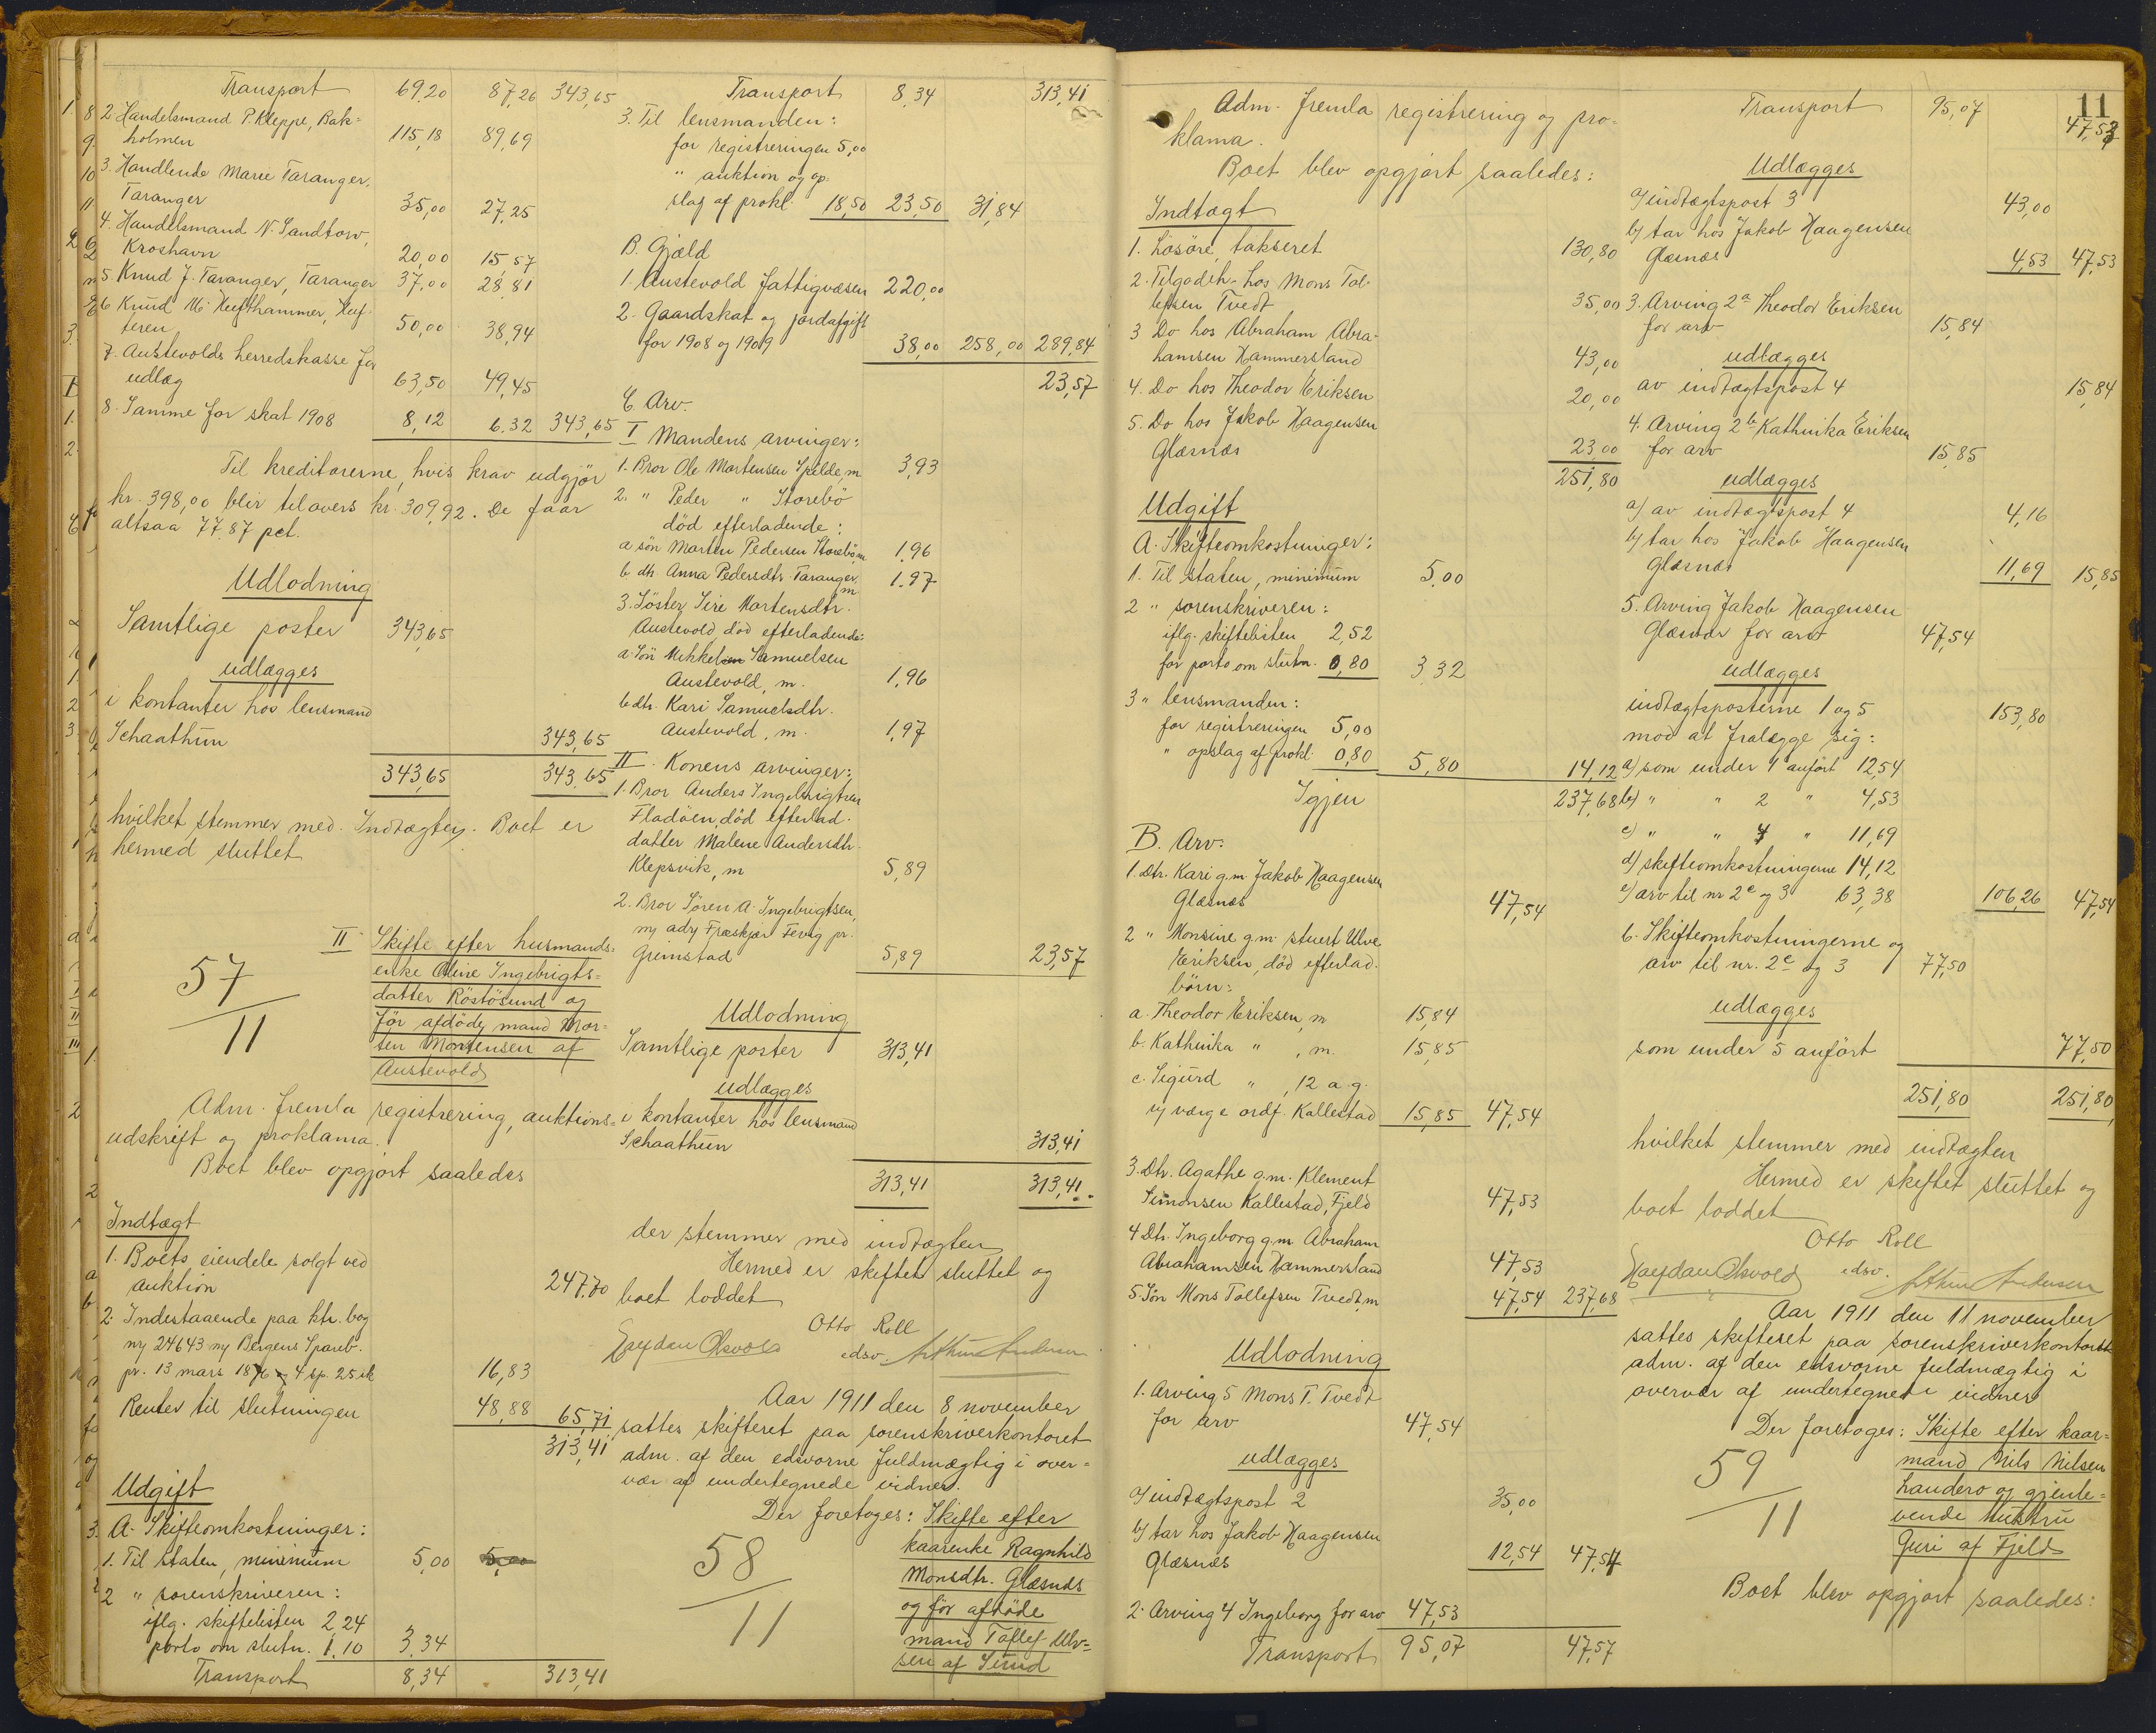 Transport 69,20 87,26 343,65
2 Handelsmand P. Kleppe, Bak=
holmen 115,18 89,69
3. Handlende Marie Taranger,
Taranger 35,00 27,25
4. Handelsmand N. Sandtorv,
Kroshavn 20,00 15,57
5 Knud J. Taranger, Taranger 37,00 28,81
6 Knud M. Hufthammer, Huf-
teren 50,00 38,94
7. Austevolds herredskasse for
udlæg 63,50 49,45
8. Samme for skat 1908 8,12 6.32 343,65
Til kreditorerne, hvis krav udgjör
kr. 398,00 blir tilovers kr. 309,92. De faar
altsaa 77,87 pct.
Udlodning
Samtlige poster 343,65
udlægges
i kontanter hos lensmand
Schaathun 343,65
343,65 343,65
hvilket stemmer med Indtægten. Boet er
hermed sluttet
57
11
II Skifte efter husmands=
enke Oline Ingebrigts=
datter Röstösund og
för afdöde mand Mor=
ten Mortensen af
Austevold
Adm. fremla registrering, auktions=
udskrift og proklama.
Boet blev opgjort saaledes
Indtægt
1. Boets eiendele solgt ved
auktion 247.70
2. Indestaaende paa ktr. bog
nr 24643 Bergens Spareb.
pr. 13 mars 1876 4 sp. 25 sk 16,83
Renter til slutningen 48,88 65,71
313,41
Udgift
A. Skifteomkostninger:
1. Til staten, minimum 5,00 5,00
2 " sorenskriveren:
iflg. skiftelisten 2,24
porto om slutn. 1.10 3,34
Transport 8,34 313,41
Transport 8,34 313,41
3. Til lensmanden:
for registreringen 5,00
" auktion og op-
slag af prokl 18,50 23,50 31,84
B. Gjæld
1. Austevold fattigvæsen 220,00
2. Gaardskat og jordafgift
for 1908 og 1909 38,00 258,00 289,84
23,57
C Arv.
I Mandens arvinger:
1. Bror Ole Mortensen Spilde, m 3,93
2. " Peder " Storebö
död efterladende:
a sön Morten Pedersen Storebö, m 1,96
b dtr Anna Pedersdtr. Taranger, m 1.97
3. Söster Siri Mortensdtr.
Austevold, död efterladende:
a. Sön Mikkel Samuelsen
Austevold, m. 1,96
b. dtr. Kari Samuelsdtr.
Austevold, m. 1,97
II. Konens arvinger:
1. Bror Anders Ingebrigtsen
Fladöen, död efterlad.
datter Malene Andersdtr.
Klepsvik, m 5,89
2. Bror Sören A. Ingebrigtsen,
adr Fevig pr.
Grimstad 5,89 23,57
Udlodning
Samtlige poster 313,41
udlægges
i kontanter hos lensmand
Schaathun 313,41
313,41 313,41
der stemmer med indtægten
Hermed er skiftet sluttet og
boet loddet
Otto Roll
edsv.
Arthur Andersen
Aar 1911 den 8 november
sattes skifteret paa sorenskriverkontoret
adm. af den edsvorne fuldmægtig i over=
vær af undertegnede vidner.
Der foretoges: Skifte efter
58
11
kaarenke Ragnhild
Monsdtr. Glæsnæs
og för afdöde
mand Tollef Ulv=
sen af Sund
11
Adm. fremla registrering og pro=
klama.
Boet blev opgjort saaledes:
Indtægt
1. Lösöre, takseret 130,80
2. Tilgodeh. hos Mons Tol-
lefsen Tvedt 35,00
3 Do hos Abraham Abra-
hamsen Hammersland 43,00
4. Do hos Theodor Eriksen 20,00
5. Do hos Jakob Haagensen
Glæsnæs 23,00
251,80
Udgift
A. Skifteomkostninger:
1. Til staten, minimum 5,00
2 " sorenskriveren:
iflg. skiftelisten 2,52
for porto om slutn. 0,80 3,32
3 " lensmanden:
for registreringen 5,00
" opslag af prokl. 0,80 5,80 14,12
Igjen 237,68
B. Arv.
1. Dtr. Kari g.m. Jakob Haagensen
Glæsnæs 47,54
2 " Monsine g.m. stuert Ulve
Eriksen, död efterlad.
börn:
a. Theodor Eriksen, m 15,84
b. Kathinka " , m. 15,85
c. Sigurd " , 12 a. g.
værge ordf. Kallestad 15,85 47,54
3. Dtr. Agathe g.m. Klement
Simonsen Kallestad, Fjeld 47,53
4 Dtr. Ingeborg g.m. Abraham
Abrahamsen Hammersland 47,53
5. Sön Mons Tollefsen Tvedt, m 47,54 237,68
Udlodning
1. Arving 5 Mons T. Tvedt
for arv 47,54
udlægges
a) indtægtspost 2 35,00
b) tar hos Jakob Haagensen
Glæsnæs 12,54 47,54
2. Arving 4 Ingeborg for arv 47,53
Transport 95,07 47,57
Transport 95,07 47,53
Udlægges
a) indtægtspost 3 43,00
b) tar hos Jakob Haagensen
Glæsnæs 4,53 47,53
3. Arving 2a Theodor Eriksen
for arv 15,84
udlægges
av indtægtspost 4 15,84
4. Arving 2b Kathinka Eriksen
for arv 15,85
udlægges
a) av indtægtspost 4 4,16
b) tar hos Jakob Haagensen
Glæsnæs 11,69 15,85
5. Arving Jakob Haagensen
Glæsnæs for arv 47,54
udlægges
indtægtsposterne 1 og 5 153,80
mod at fralægge sig:
a) som under 1 anfört 12,54
b) " " 2 " 4,53
c) " " 4 " 11,69
d) skifteomkostningerne 14,12
e) arv til nr 2c og 3 63,38 106,26 47,54
6. Skifteomkostningerne og
arv til nr. 2c og 3 77,50
udlægges
som under 5 anfört 77,50
251,80 251,80
hvilket stemmer med indtægten
Hermed er skiftet sluttet og
boet loddet
Otto Roll
edsv.
Arthur Andersen
Aar 1911 den 11 november
sattes skifteret paa sorenskriverkontoret
adm. af den edsvorne fuldmægtig i
overvær af undertegnede vidner
Der foretoges: Skifte efter kaar=
59
11
mand Nils Nilsen
Landero og gjenle=
vende hustru
Guri af Fjeld
Boet blev opgjort saaledes: